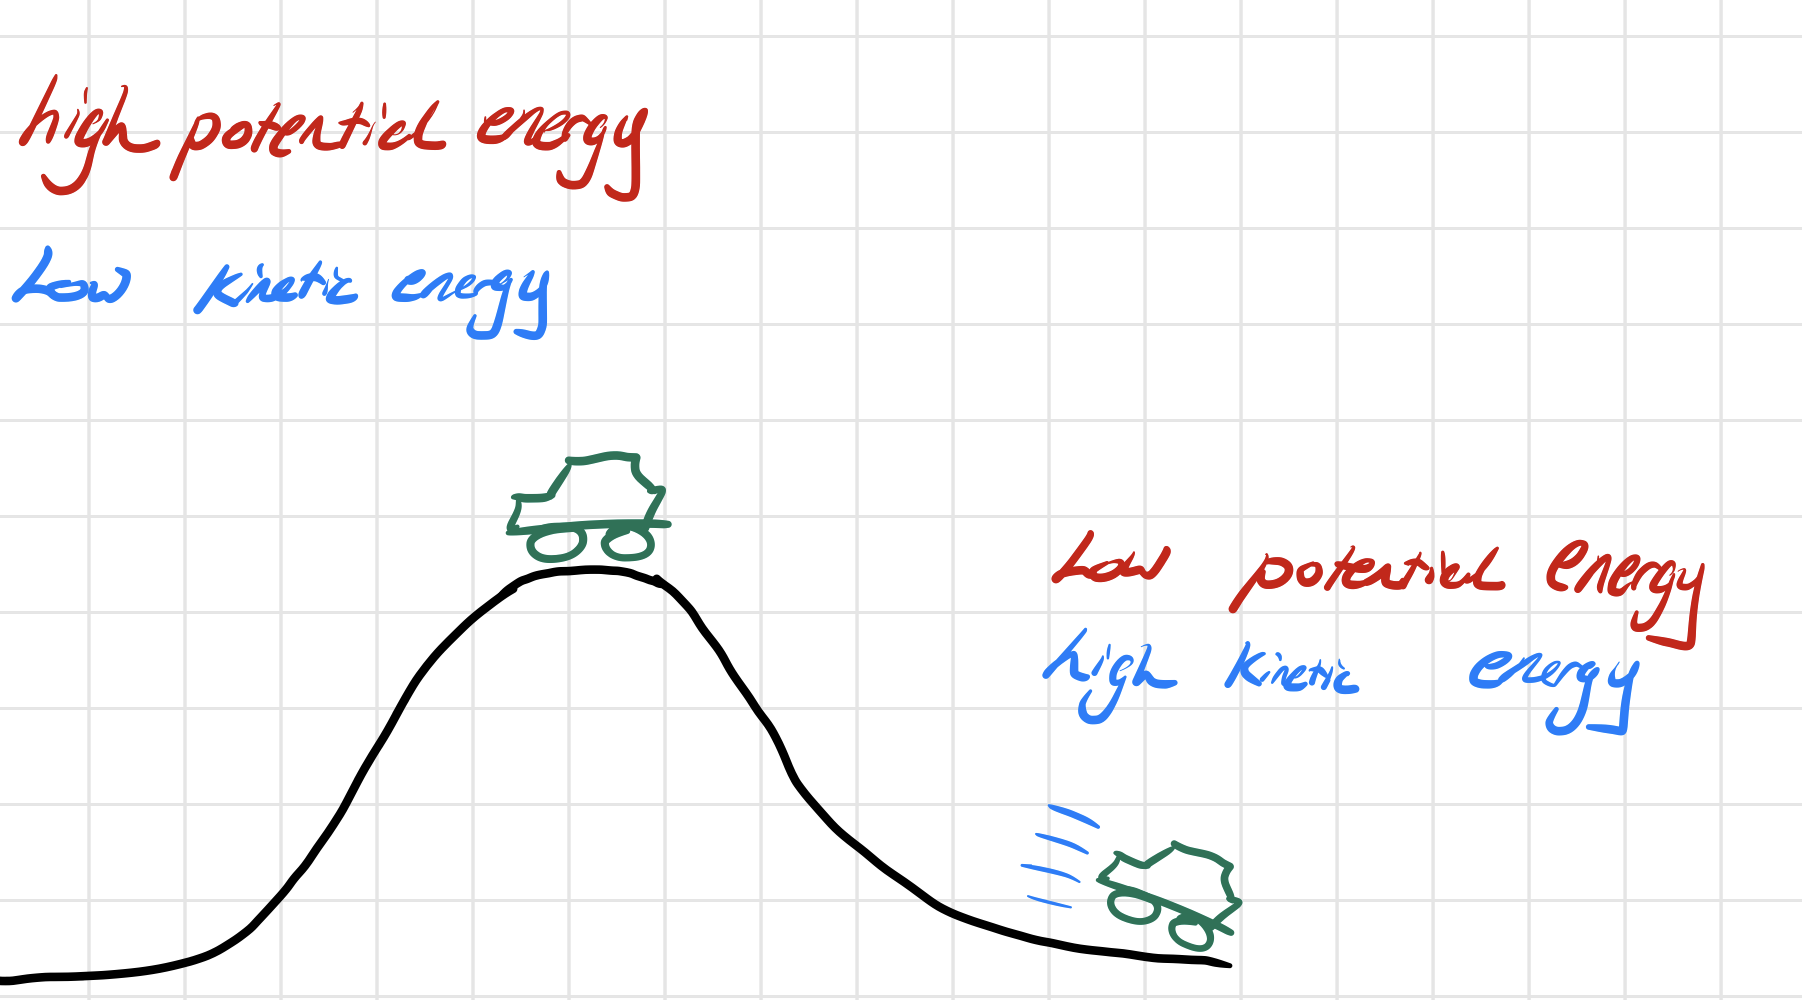 high potential energy
Low kinetic energy
Low potential energy
high kinetic energy